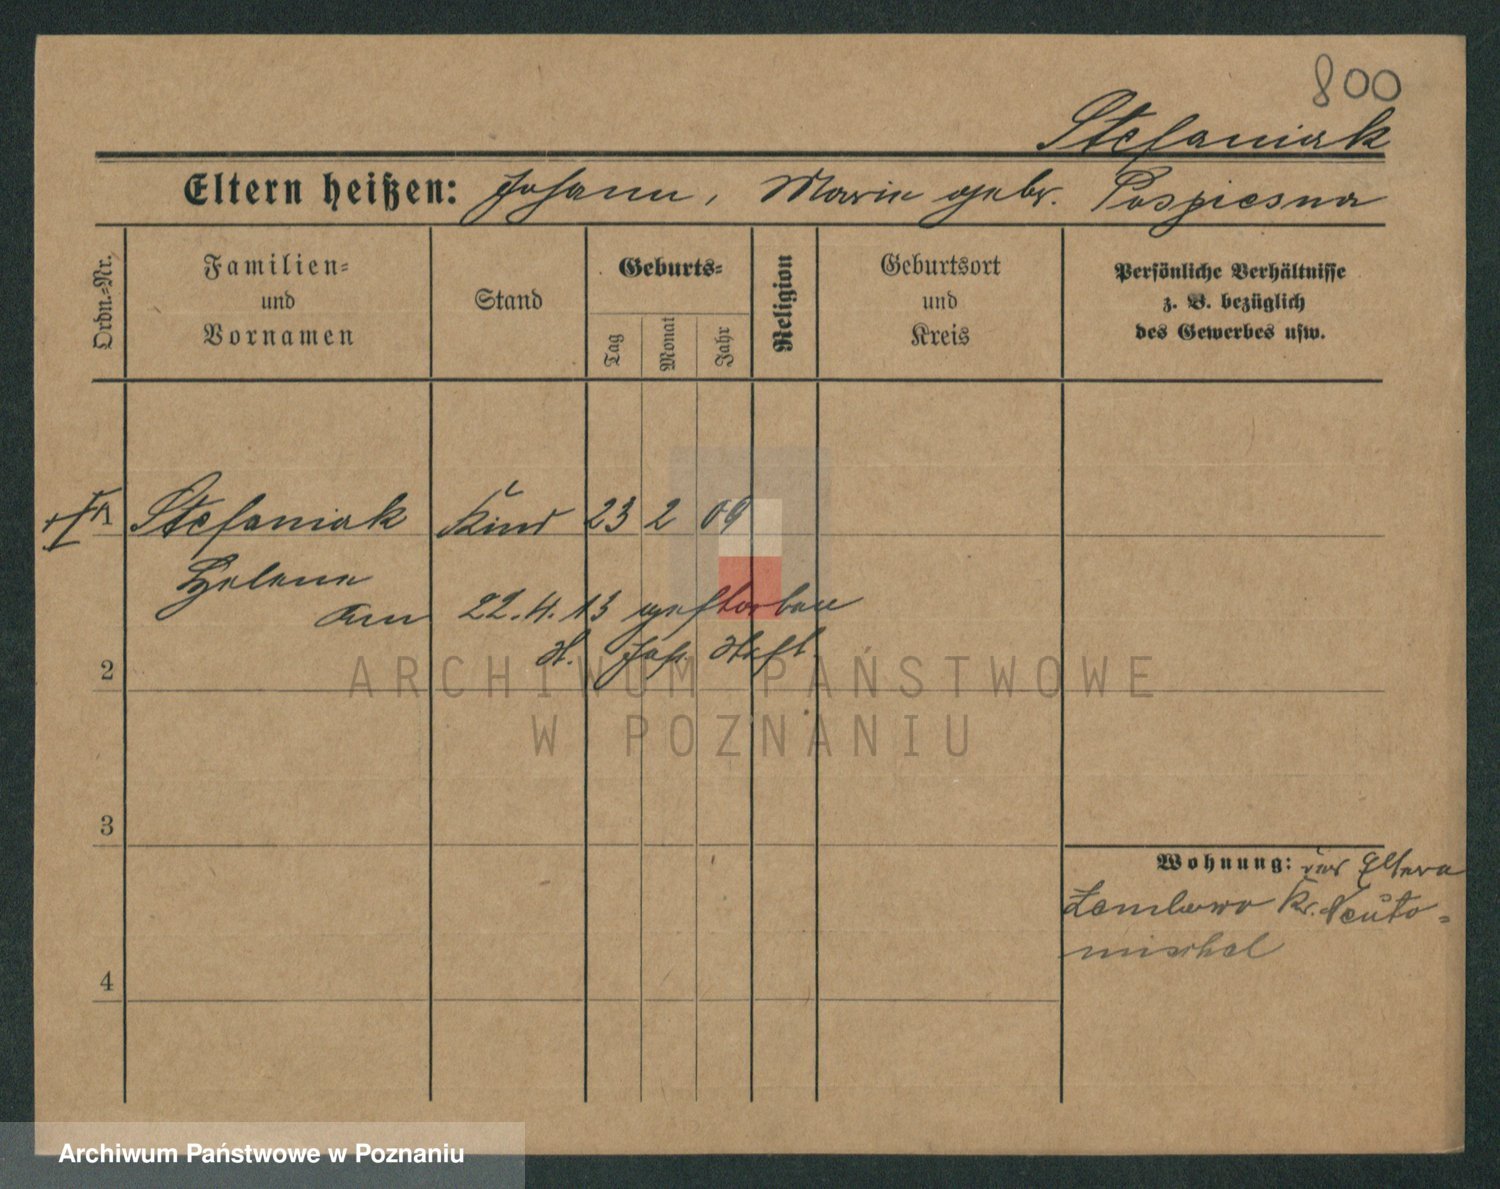 800
Stefaniak
Eltern heißen: Johann, Marie gebr. Pospiesna
Ordn.-Nr.
Familien-
und
Vornamen
Stand
Geburts-
Tag
Monat
Jahr
Religion
Geburtsort
und
Kreis
Persönliche Verhältnisse
z. B. bezüglich
des Gewerbes usw.
Stefaniak Kind 23 2 09
Helene
am 22.4.13 gestorben
2
ARCHIWUM PAŃSTWOWE
W POZNANIU
3
Wohnung: der Eltern
Kr. Neuto-
mischel
4
Archiwum Państwowe w Poznaniu